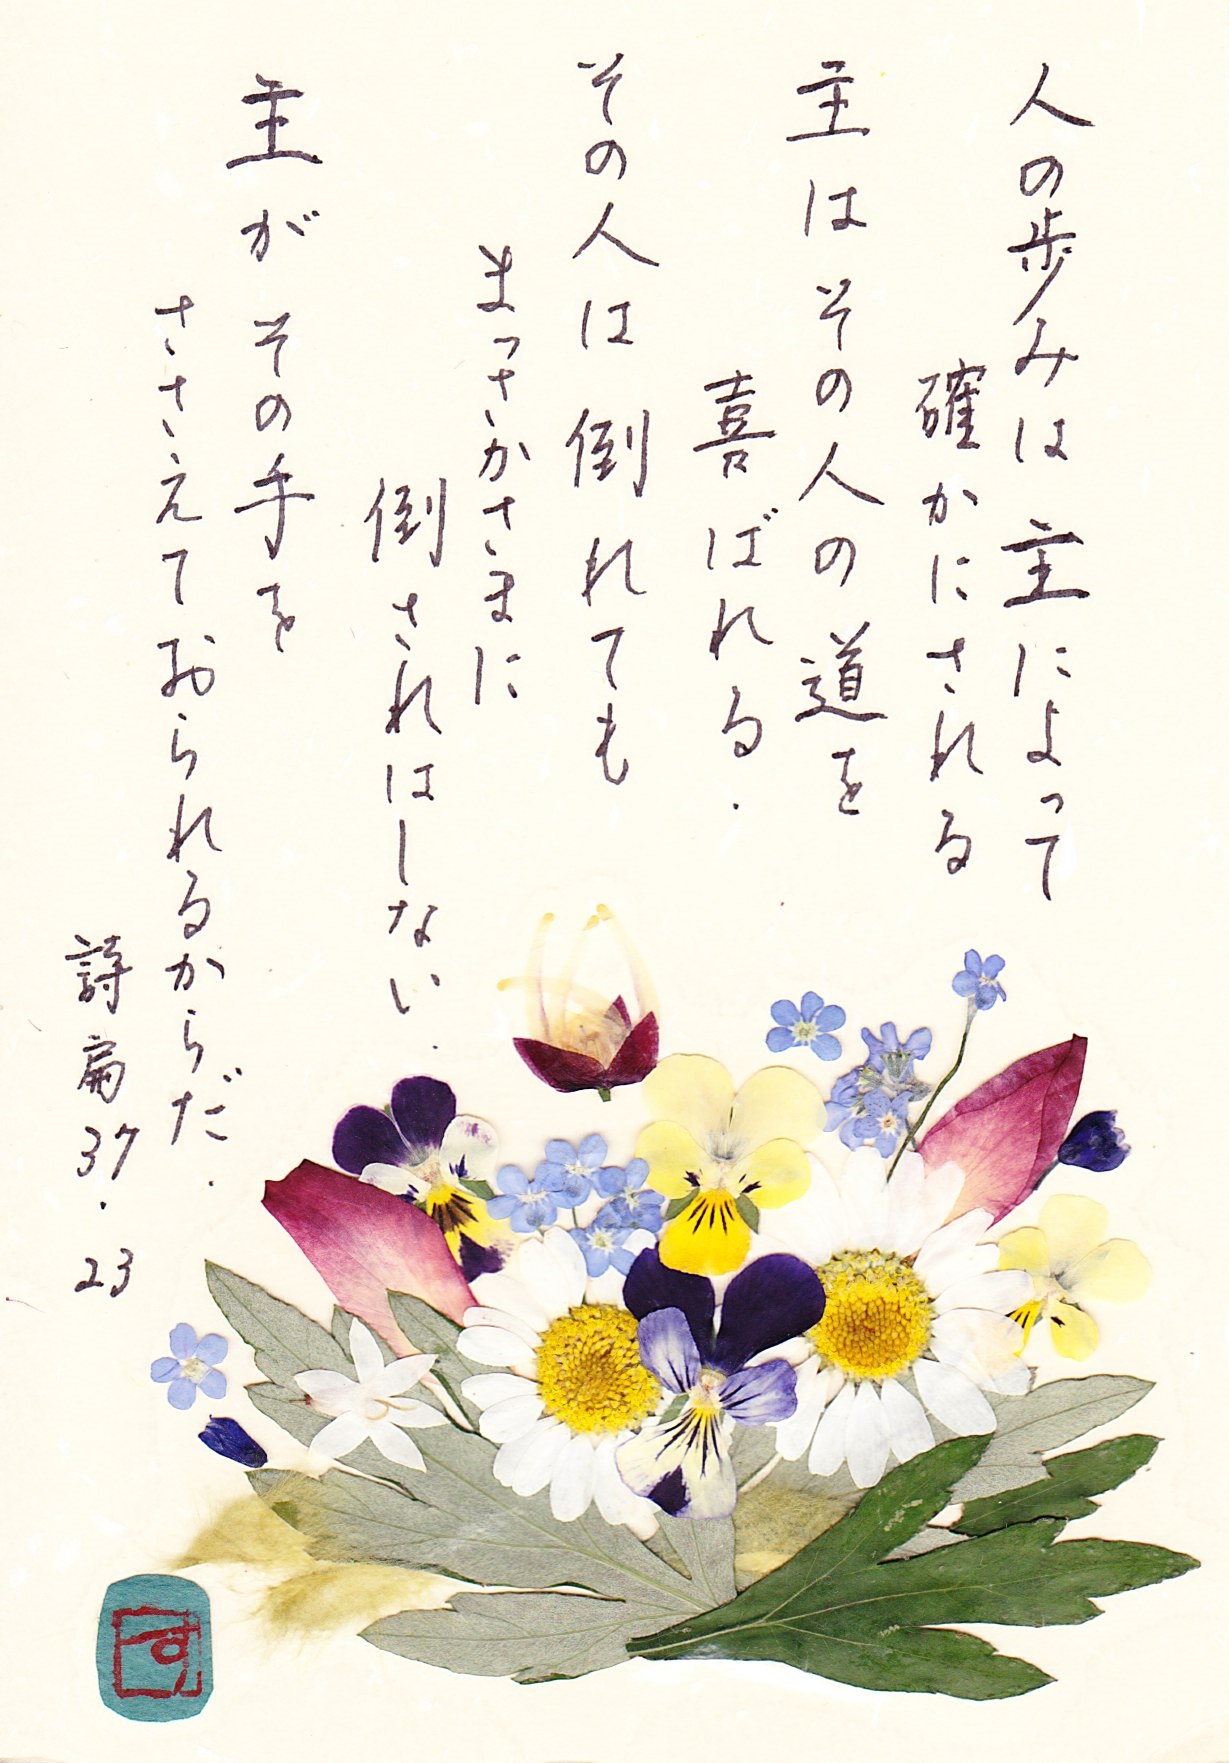 人の歩みは主によって
確かにされる
主はその人の道を
喜ばれる.
その人は倒れても
まっさかさまに
倒されはしない.
主がその手を
ささえておられるからだ.
詩篇37.23
す